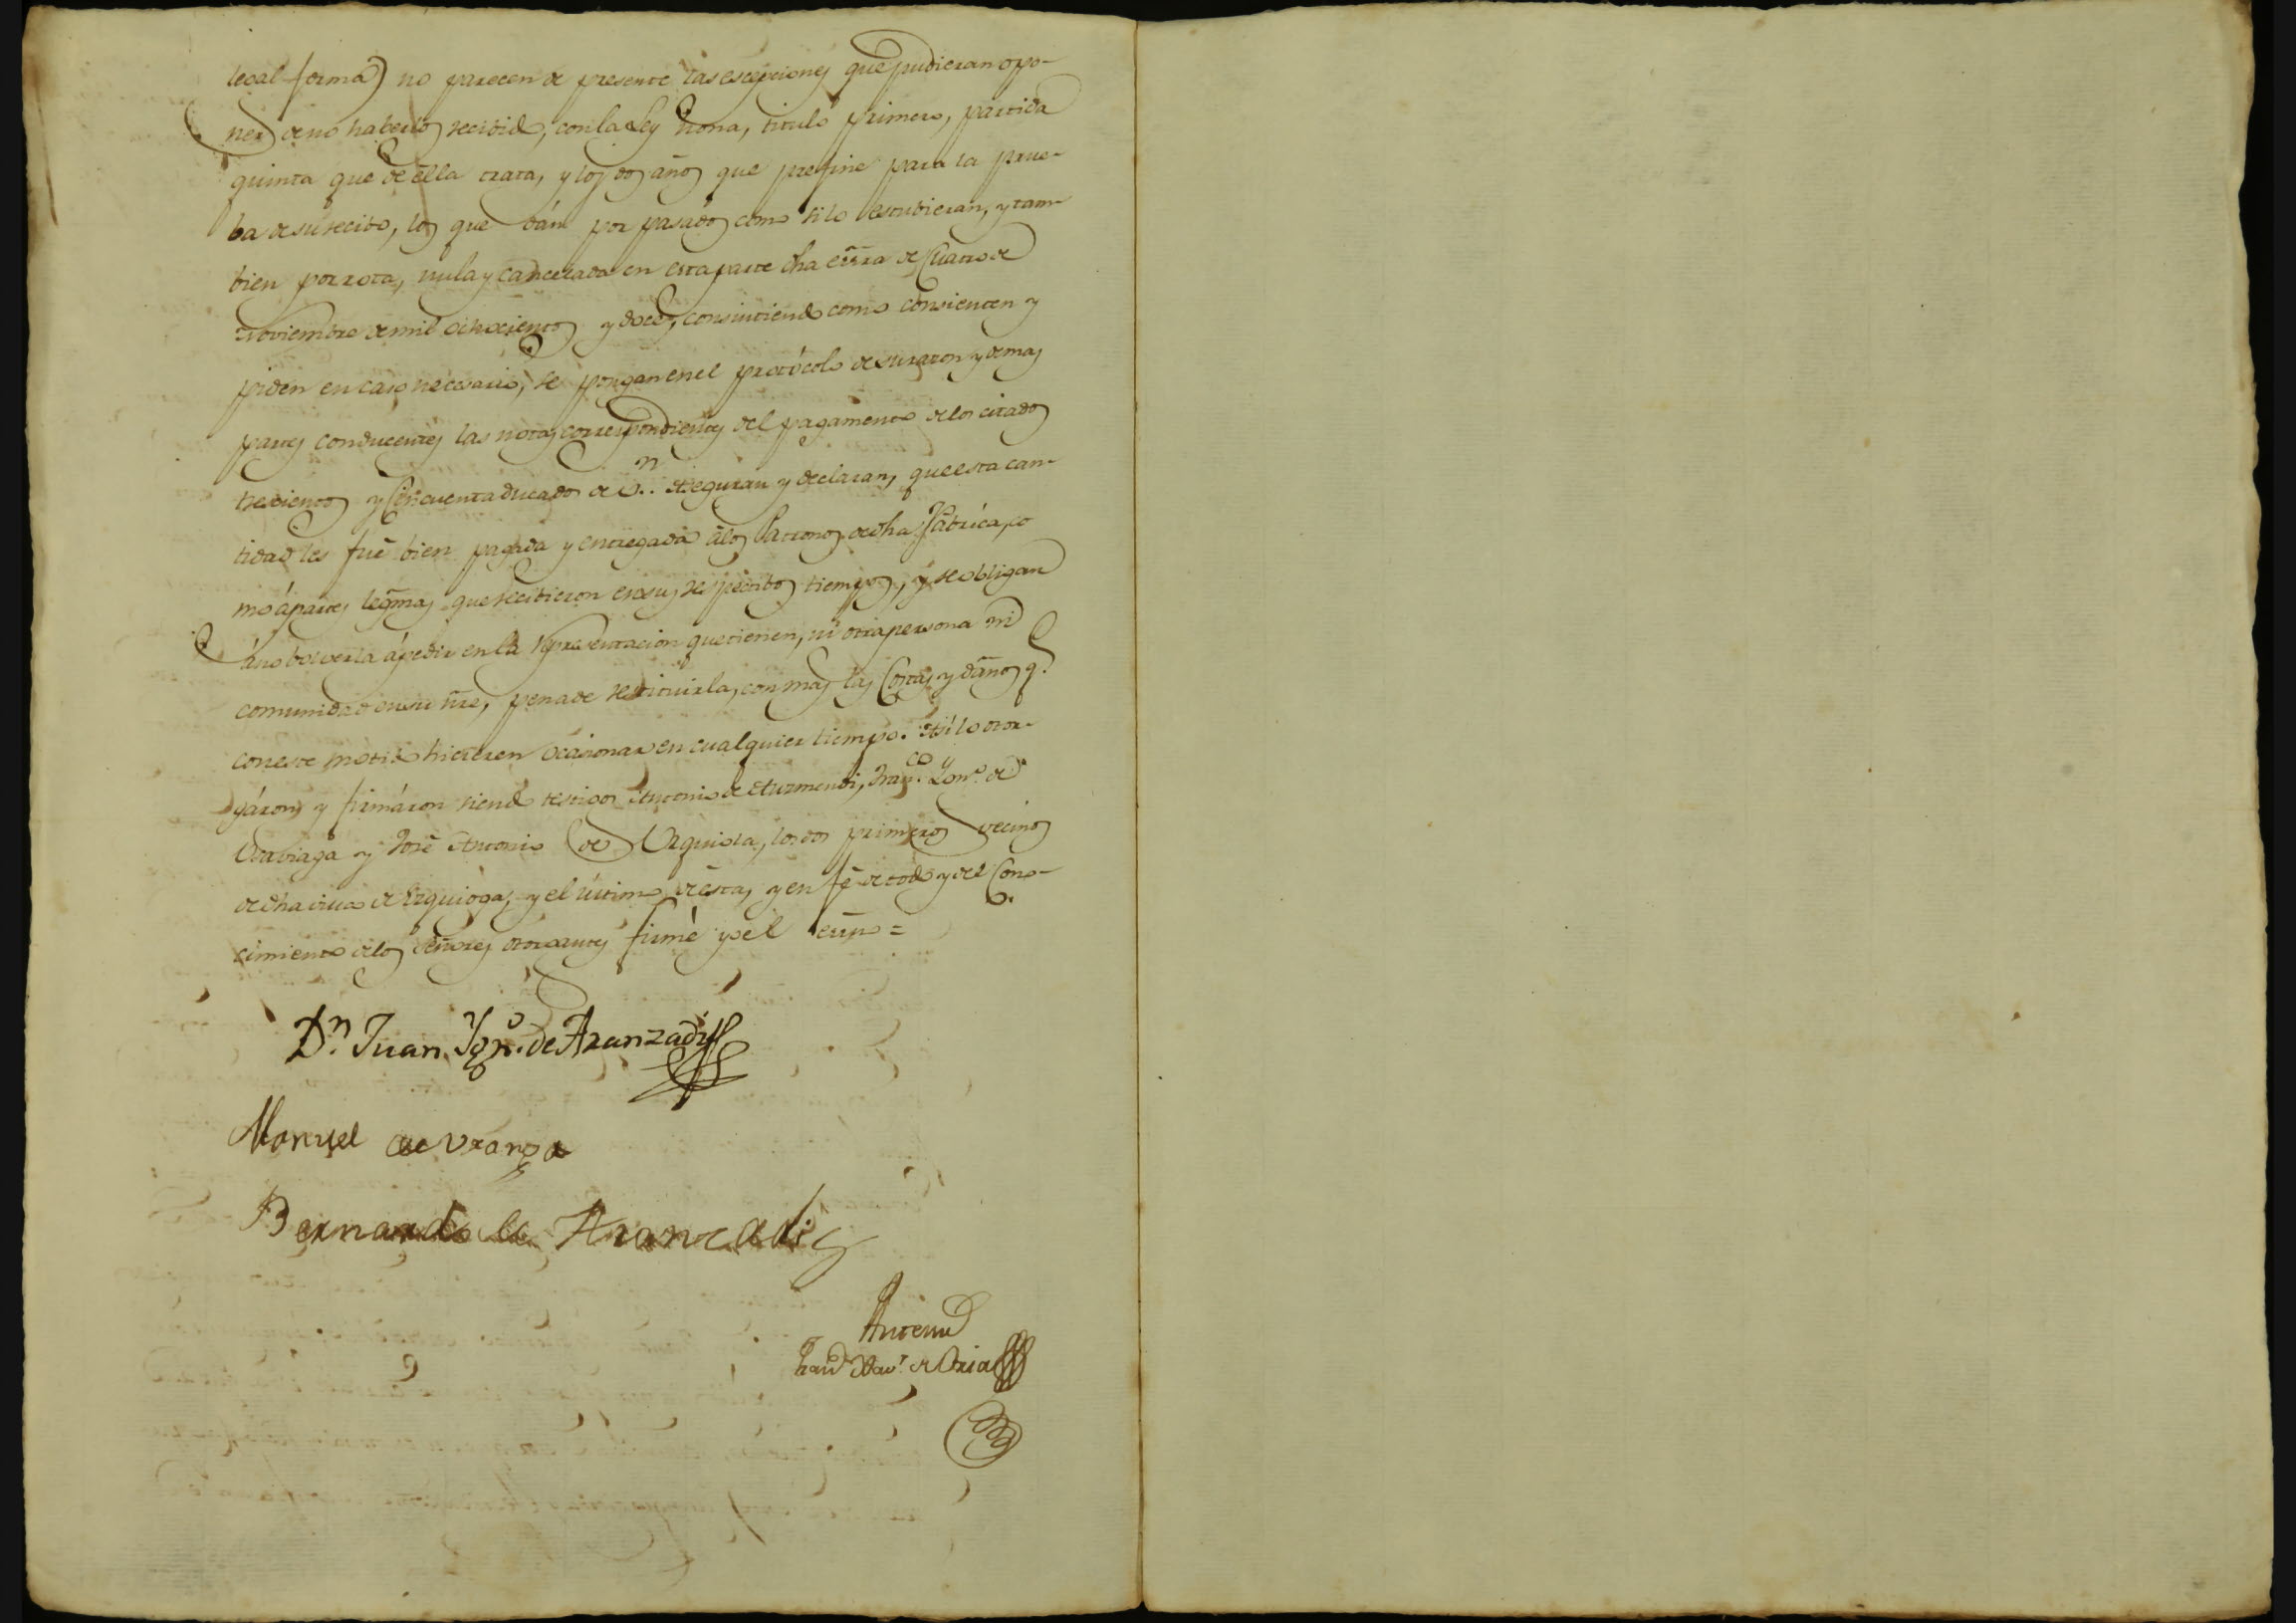 legal forma) no parecen de presente las escepciones que pudieran opo-
ner de no haberlos recibido, con la Ley nona, titulo primero, partida
quinta que de ella trata, y los dos años que prefine para la prue-
ba de su recibo, los que dán por pasados como si lo estubieran, y tam-
bien por rota, nula y cancerada en esta parte dha essra de Cuatro de
Noviembre de mil ochocientos y doce, consintiendo como consienten y
piden en caso necesario, se pongan en el protócolo de su razon y demas
partes conducentes las notas correspondientes del pagamento de los citados
trescientos y Cincuenta ducados de v.n Aseguran y declaran, que esta can-
tidad les fué bien pagada y entregada á los Patronos de dha Fábrica, co
mo á partes legmas que recibieron en sus respectibos tiempos, y se obligan
á no bolverla á pedir en la representacion que tienen, ni otra persona ni
comunidad en su nre, pena de restituirla, con mas las Costas y daños q.e
con este motibo hicieren ocasionar en cualquier tiempo. Así lo otor-
gáron y firmáron siendo testigos Antonio de Aurmendi, Fran.co Ign.o de
Alaviaga y José Antonio de Urquiola, los dos primeros vecinos
de dha villa de Ezquioga, y el último de esta, y en fé de todo y del Cono-
cimiento de los señores otorgantes firmé yo el essno =
D.n Juan Ygn.o de Aranzadi
Manuel de Uranga
Bernardo de Aranzadi
Antemi